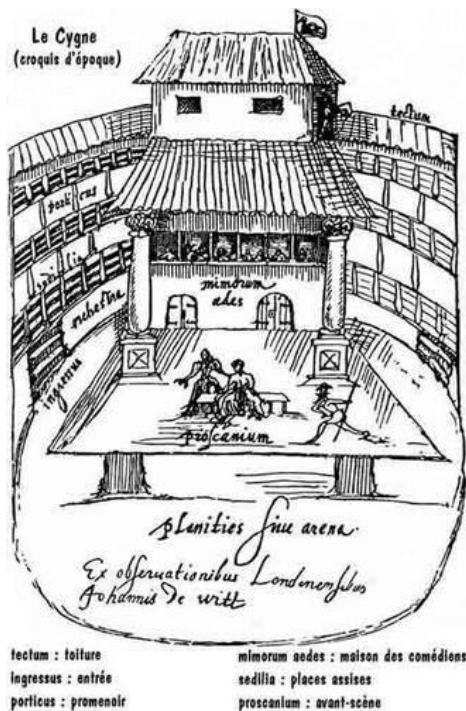 Le Cygne
(croquis d'époque)
tectum
porticus
sedilia
orchestra
ingressus
mimorum
ædes
proscænium
planities siue arena.
Ex observationibus Londinensibus
Johannis De witt
tectum : toiture
ingressus : entrée
porticus : promenoir
mimorum aedes : maison des comédiens
sedilia : places assises
proscanium : avant-scène